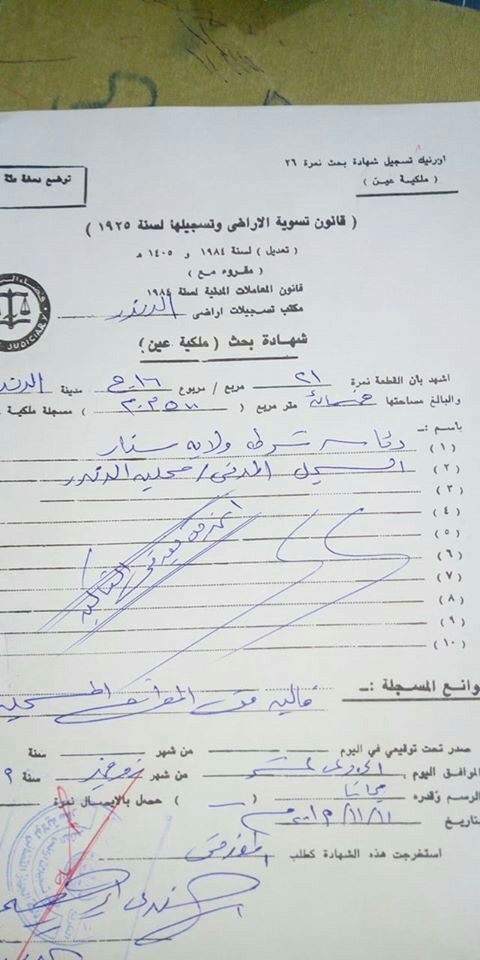 اورنيك تسجيل شهادة بحث نمرة ٢٦
( ملكية عين )
توضع دمغة فئة
( قانون تسوية الاراضى وتسجيلها لسنة ١٩٢٥ )
( تعديل ) لسنة ١٩٨٤ و ١٤٠٥ هـ
( مقروء مع )
قانون المعاملات المدنية لسنة ١٩٨٤
مكتب تسجيلات اراضى الدندر
JUDICIARY
شهادة بحث ( ملكية عين )
اشهد بأن القطعة نمرة ٢١ مربع / مربوع ١٦ مدينة الدندر
والبالغ مساحتها خمسمائة متر مربع ( ٥٠٠ م.م ) مسجلة ملكية
باسم :ـ
(١) رئاسة شرطة ولاية سنار
(٢) السجل المدنى / محلية الدندر
(٣)
(٤)
(٥)
(٦)
(٧)
(٨)
(٩)
(١٠)
وانع المسجلة :ـ
خالية من
صدر تحت توقيعي في اليوم من شهر سنة
الموافق اليوم , الحادى عشر من شهر نوفمبر سنة
الرسم وقدره مجانا ( ) حصل بالايصال نمرة
بتاريخ ١١/١١
استخرجت هذه الشهادة كطلب